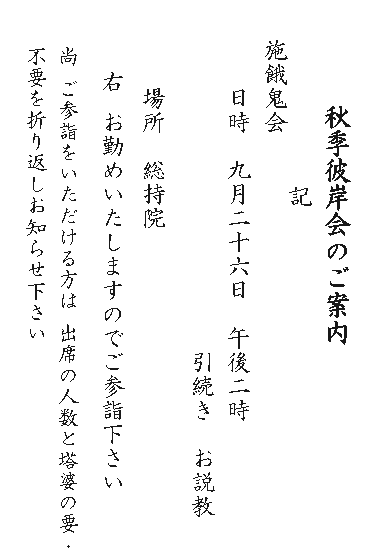 秋季彼岸会のご案内
記
施餓鬼会
日時　九月二十六日　午後二時
引続き　お説教
場所　総持院
右　お勤めいたしますのでご参詣下さい
尚　ご参詣をいただける方は　出席の人数と塔婆の要・
不要を折り返しお知らせ下さい